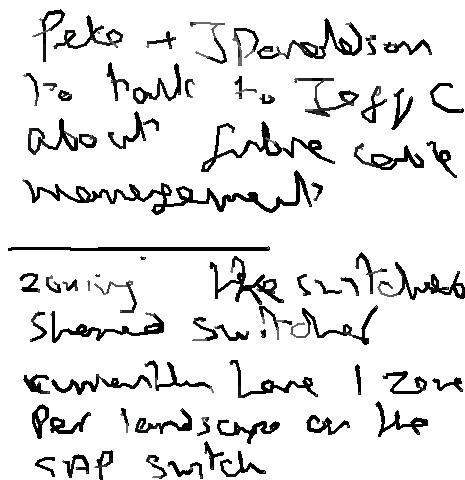 Pete + J Donaldson
to talk to Ieff C
about fibre cable
management
zoning like switches
shared switches
currently have 1 zone
Per landscape on the
SAP switch